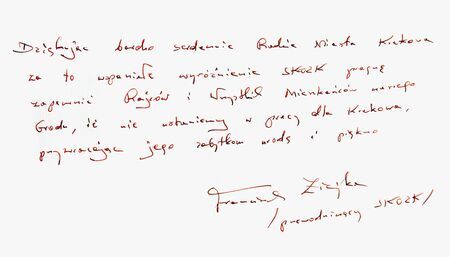 Dziękując bardzo serdecznie Radzie Miasta Krakowa
za to wspaniałe wyróżnienie SKOZK pragnę
zapewnić Rajców i wszystkich Mieszkańców naszego
Grodu, iż nie ustaniemy w pracy dla Krakowa,
przywracając jego zabytkom urodę i piękno
Franciszek Ziejka
/przewodniczący SKOZK/